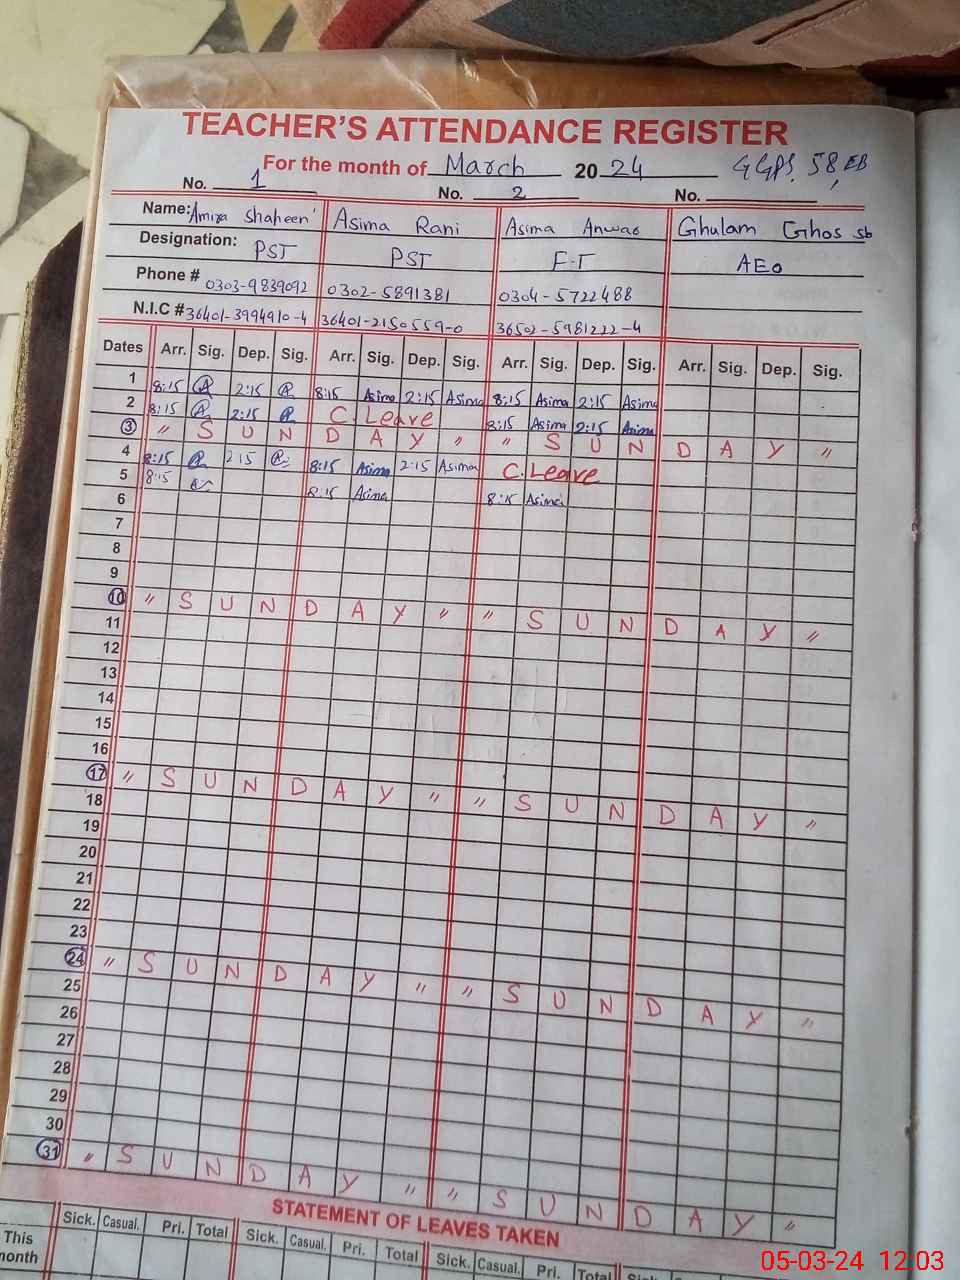 TEACHER'S ATTENDANCE REGISTER
For the month of March 2024 GGPS, 58, EB
No. 1 No. 2 No.
Name: Amira Shaheen Asima Rani Asima Anwar Ghulam Ghos sb
Designation: PST PST F-T AEO
Phone # 0303-9839092 0302-5891381 0304-5722488
N.I.C # 36401-3994910-4 36401-2150559-0 36502-5981222-4
Dates Arr. Sig. Dep. Sig. Arr. Sig. Dep. Sig. Arr. Sig. Dep. Sig. Arr. Sig. Dep. Sig.
1 8:15 2:15 8:15 Asima 2:15 Asima 8:15 Asima 2:15 Asima
2 8:15 2:15 C. Leave 8:15 Asima 2:15 Asima
3 " S U N D A Y " " S U N D A Y "
4 8:15 2:15 8:15 Asima 2:15 Asima C. Leave
5 8:15 8:15 Asima 8:15 Asima
6
7
8
9
10 " S U N D A Y " " S U N D A Y "
11
12
13
14
15
16
17 " S U N D A Y " " S U N D A Y "
18
19
20
21
22
23
24 " S U N D A Y " " S U N D A Y "
25
26
27
28
29
30
31 " S U N D A Y " " S U N D A Y "
STATEMENT OF LEAVES TAKEN
Sick. Casual. Pri. Total Sick. Casual. Pri. Total Sick. Casual. Pri. Total Sick.
This month
05-03-24 12:03